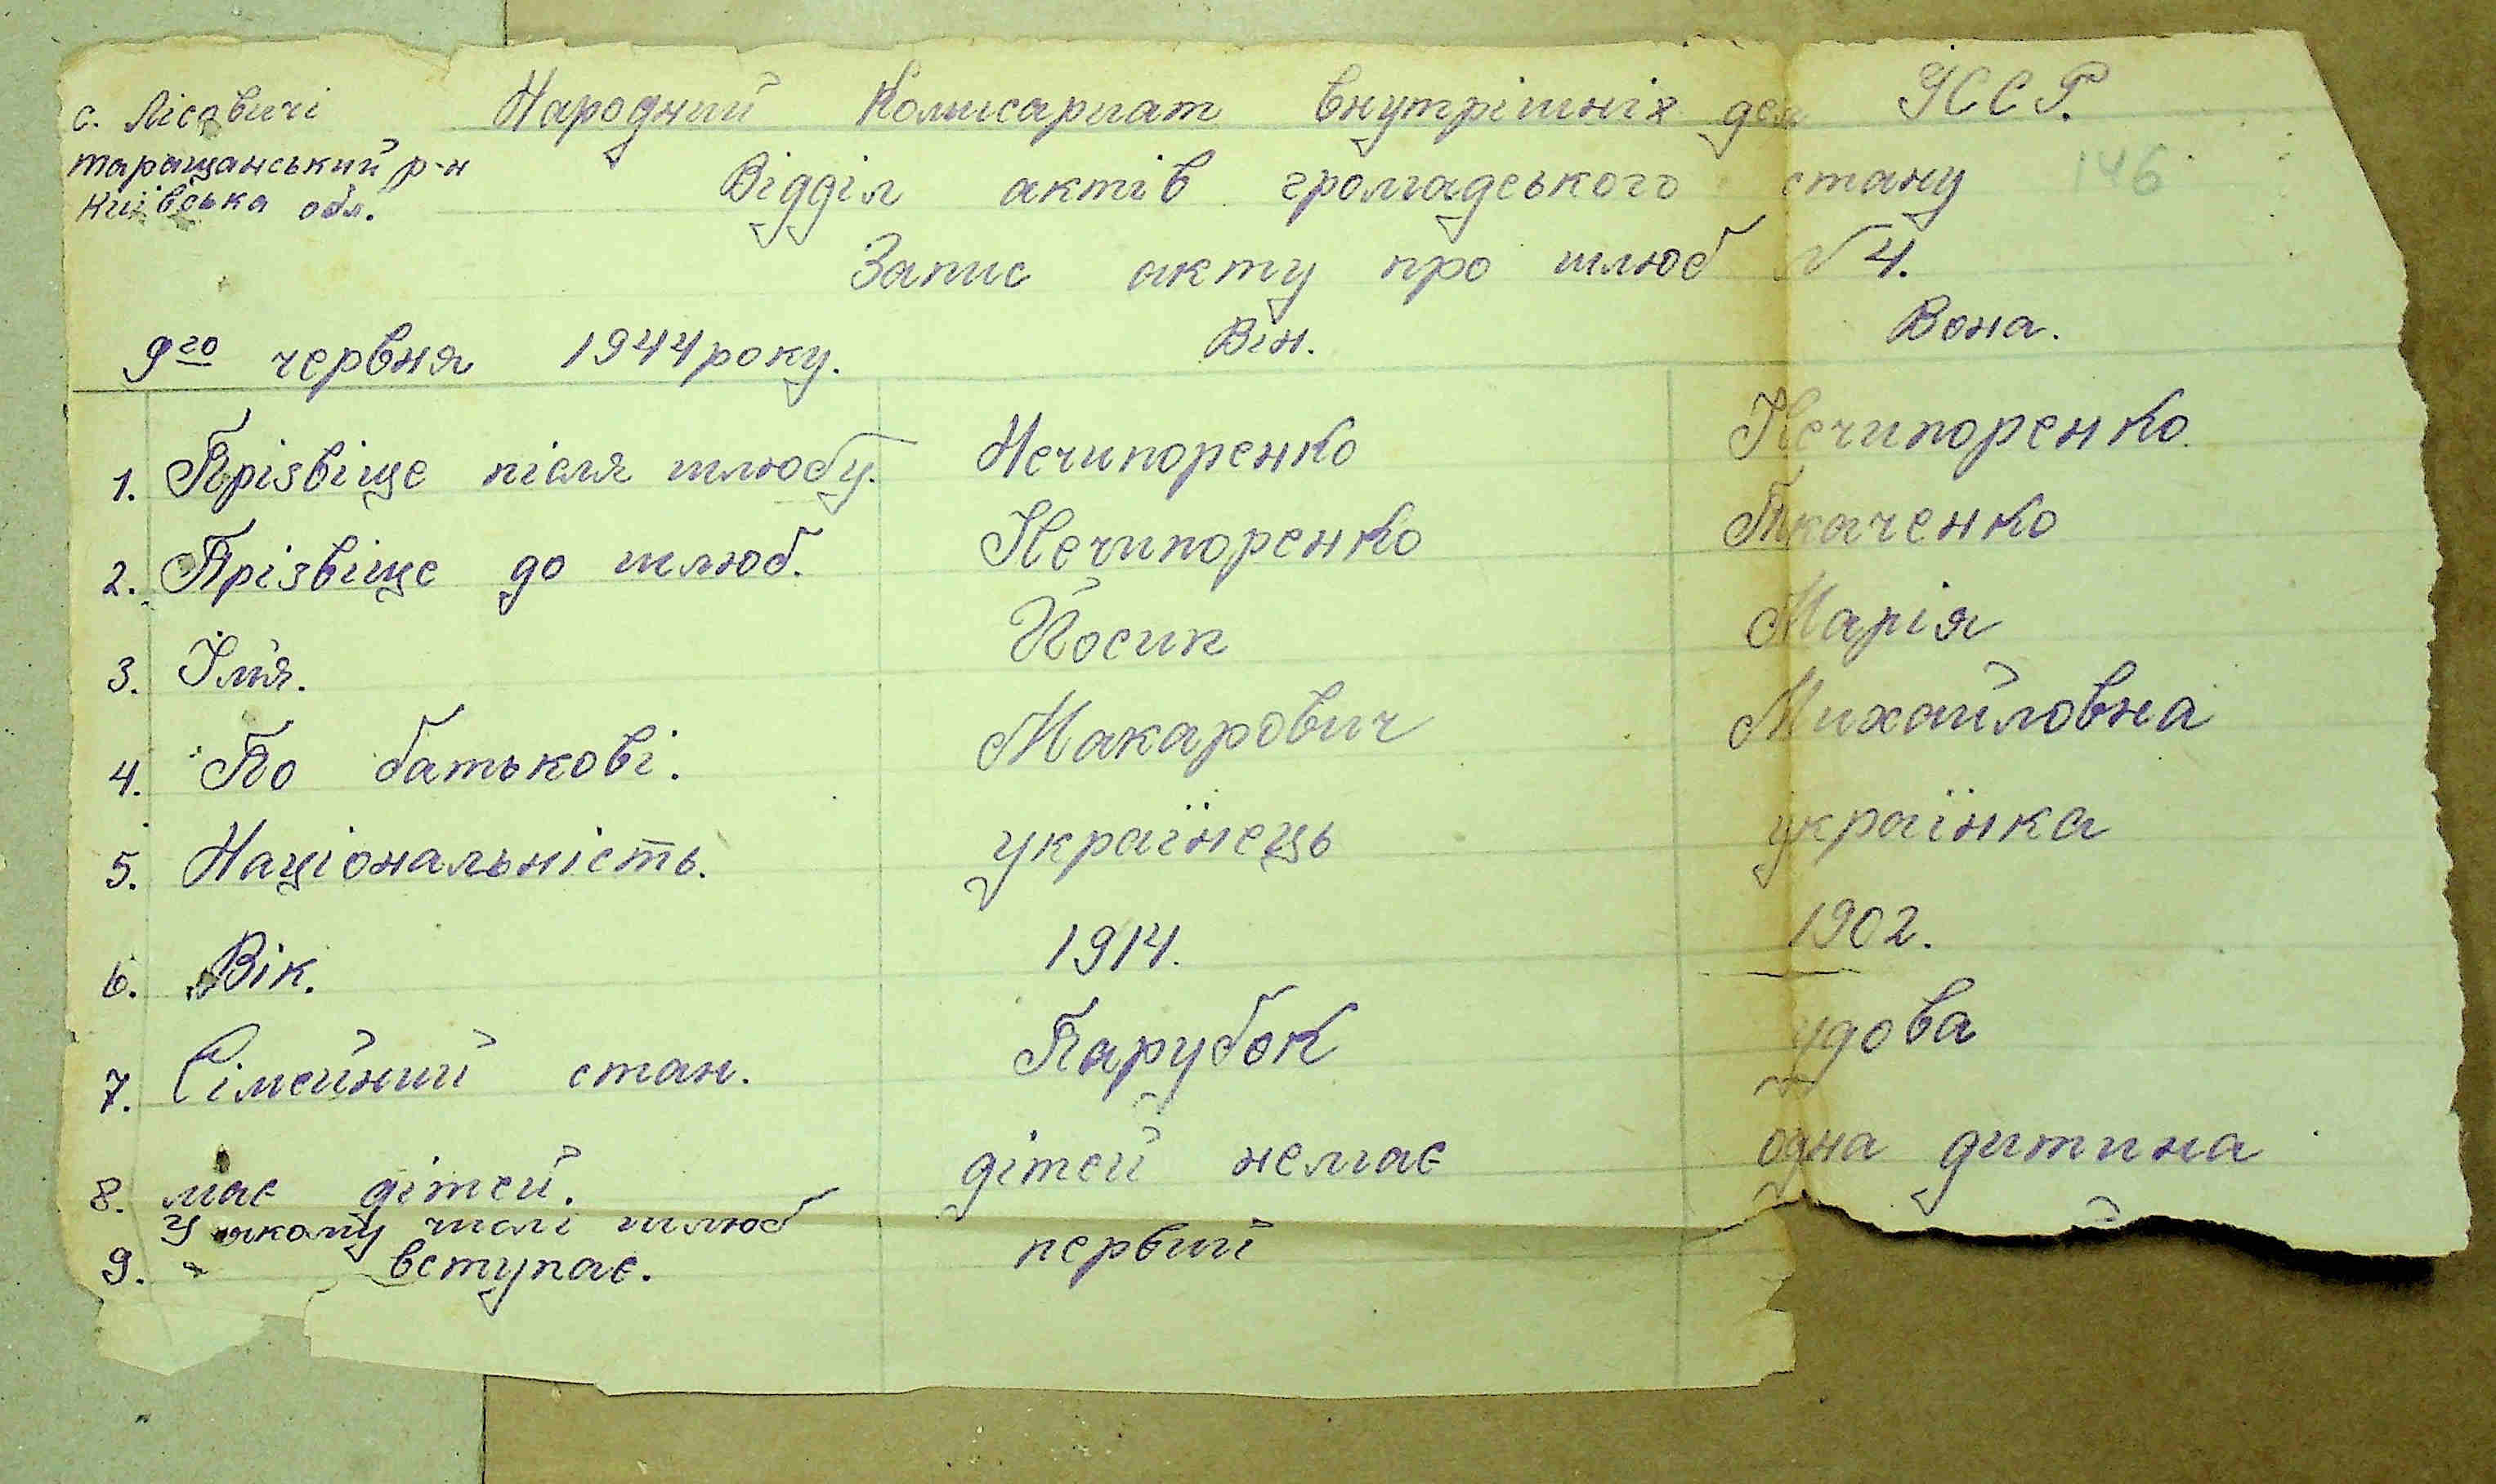 с. Лісовичі
Таращанський р-н
Київська обл.
Народний Комисариат внутрішніх дел УССР.
Відділ актів громадського стану 146
Запис акту про шлюб №4.
9го червня 1944 року. Він. Вона.
1. Прізвіще після шлюбу. Нечипоренко Нечипоренко
2. Прізвіще до шлюб. Нечипоренко Ткаченко
3. Ім'я. Йосип Марія
4. По батькові. Макарович Михайловна
5. Національність. українець українка
6. Вік. 1914. 1902.
7. Сімейний стан. Парубок удова
8. має дітей. дітей немає одна дитина
У якому числі шлюб
9. вступає. первий